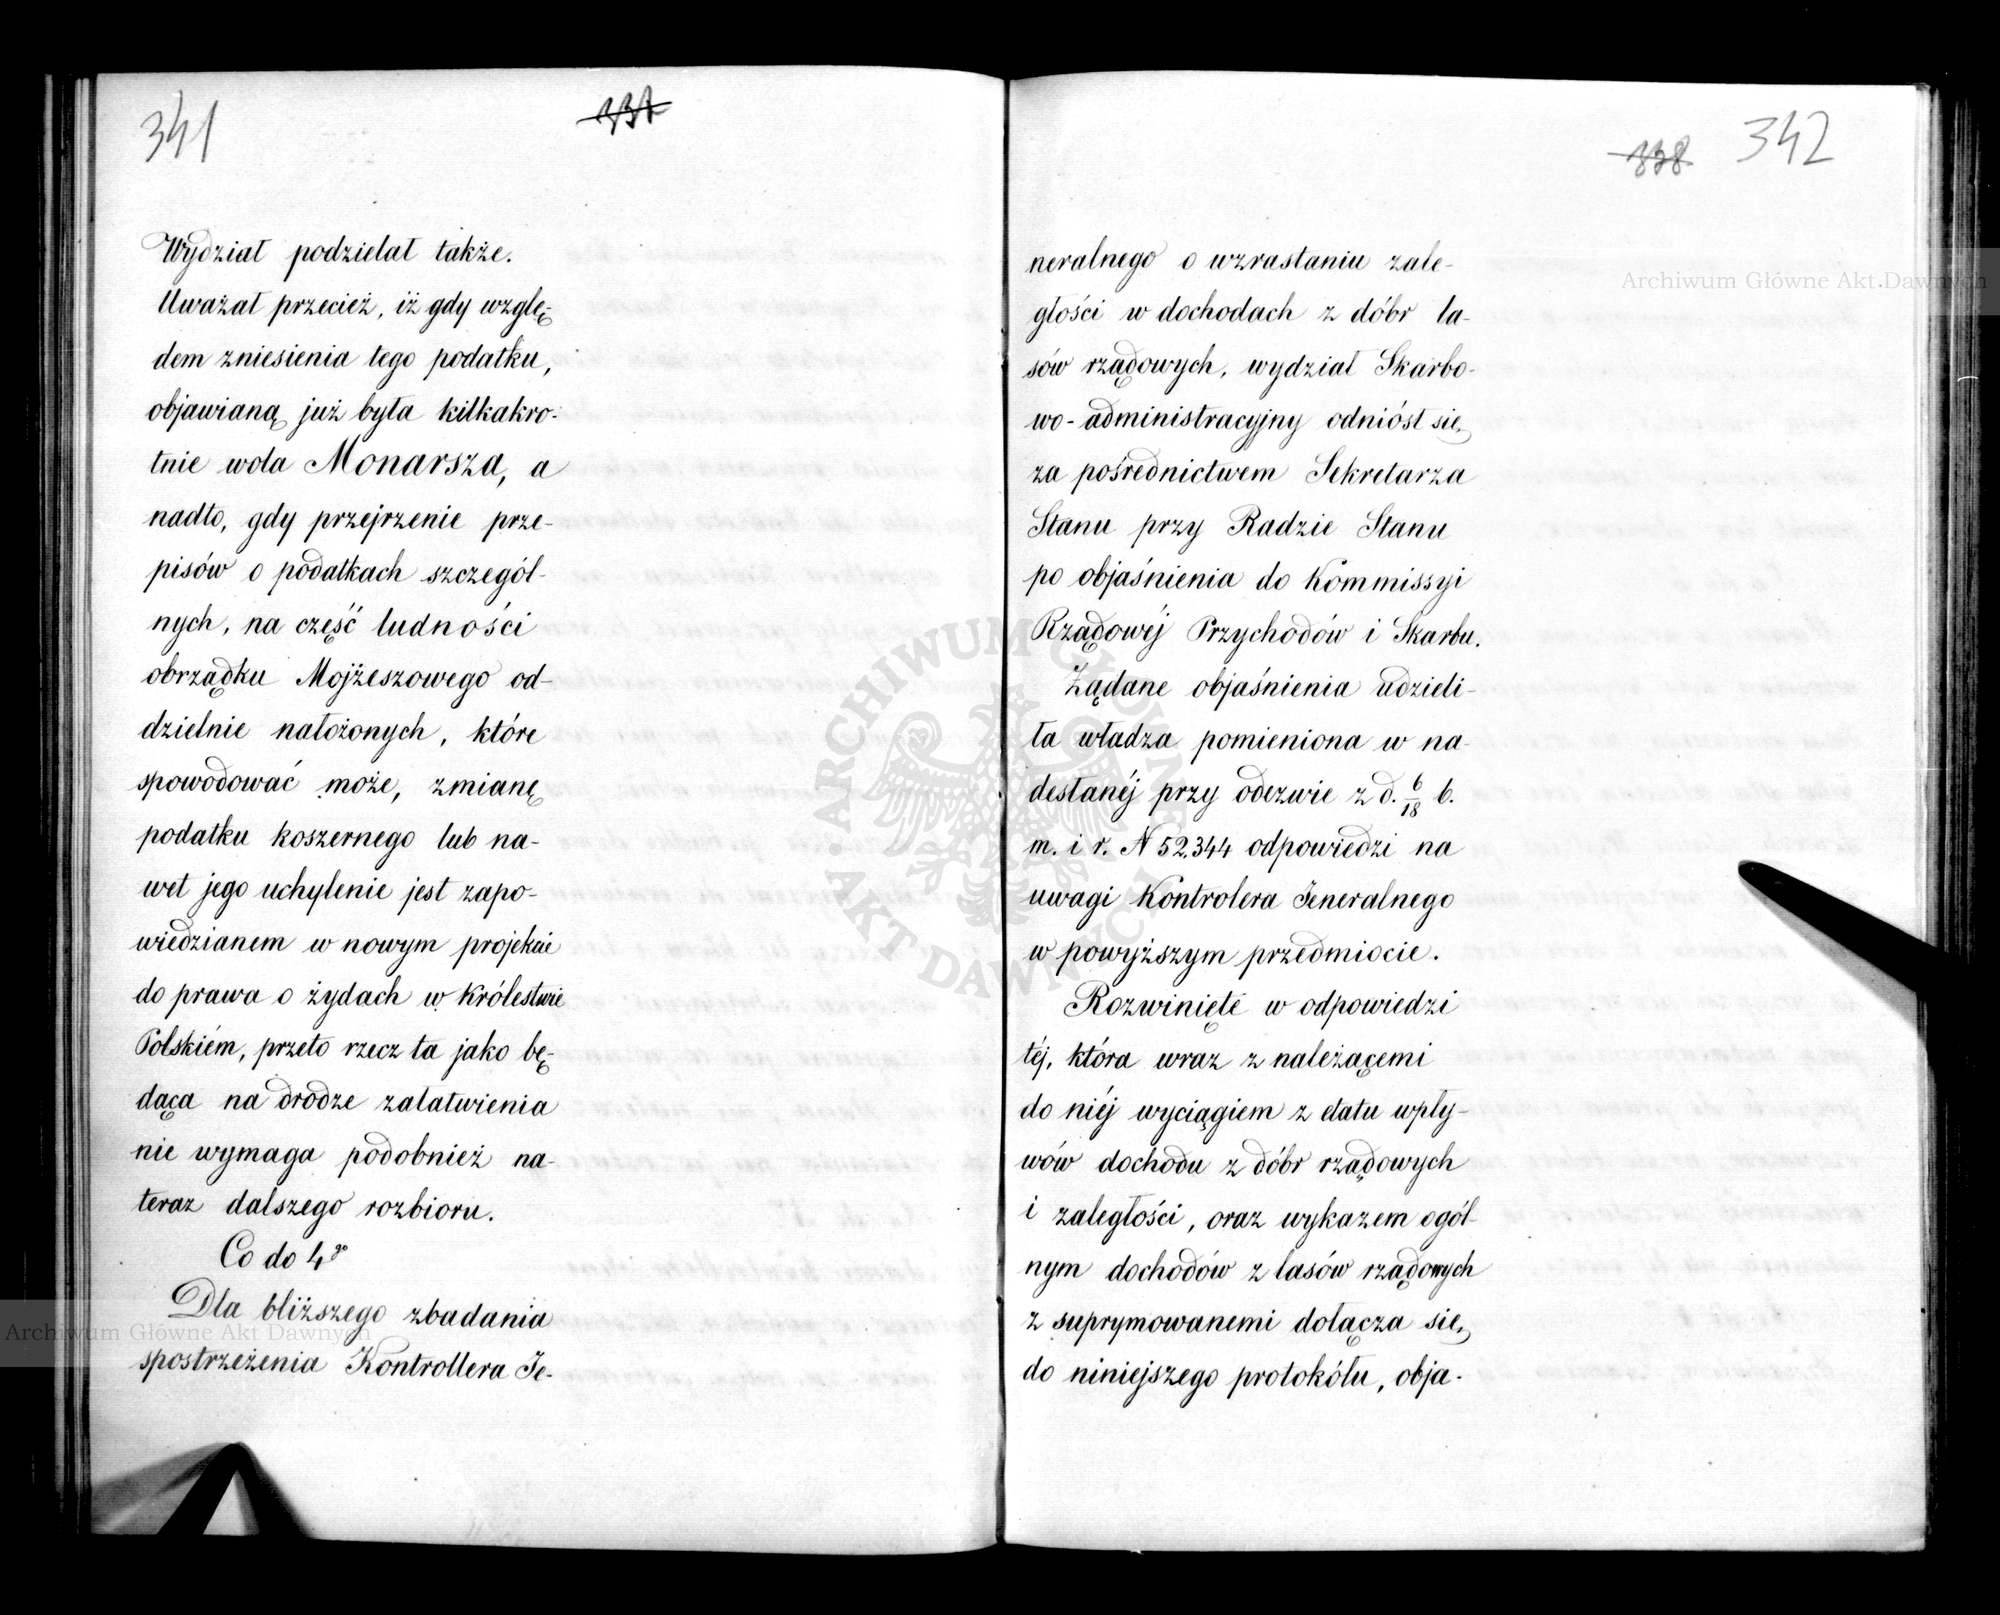 341
337
Wydział podzielał także.
Uważał przecież, iż gdy wzglę-
dem zniesienia tego podatku,
objawianą już była kilkakro-
tnie wola Monarsza, a
nadto, gdy przejrzenie prze-
pisów o podatkach szczegól-
nych, na część ludności
obrządku Mojżeszowego od-
dzielnie nałożonych, które
spowodować może, zmianę
podatku koszernego lub na-
wet jego uchylenie jest zapo-
wiedzianem w nowym projekcie
do prawa o żydach w Królestwie
Polskiém, przeto rzecz ta jako bę-
dąca na drodze załatwienia
nie wymaga podobnież na-
teraz dalszego rozbioru.
Co do 4go
Dla bliższego zbadania
spostrzeżenia Kontrollera Je-
338 342
neralnego o wzrastaniu zale-
głości w dochodach z dóbr la-
sów rządowych, wydział Skarbo-
wo-administracyjny odniósł się
za pośrednictwem Sekretarza
Stanu przy Radzie Stanu
po objaśnienia do Kommissyi
Rządowéj Przychodów i Skarbu.
Żądane objaśnienia udzieli-
ła władza pomieniona w na-
desłanéj przy odezwie z d. 6/18 b.
m. i r. N 52.344 odpowiedzi na
uwagi Kontrolera Jeneralnego
w powyższym przedmiocie.
Rozwinięte w odpowiedzi
téj, która wraz z należącemi
do niéj wyciągiem z etatu wpły-
wów dochodu z dóbr rządowych
i zaległości, oraz wykazem ogól-
nym dochodów z lasów rządowych
z suprymowanemi dołącza się
do niniejszego protokółu, obja-
Archiwum Główne Akt Dawnych
Archiwum Główne Akt Dawnych
ARCHIWUM GŁÓWNE
AKT DAWNYCH